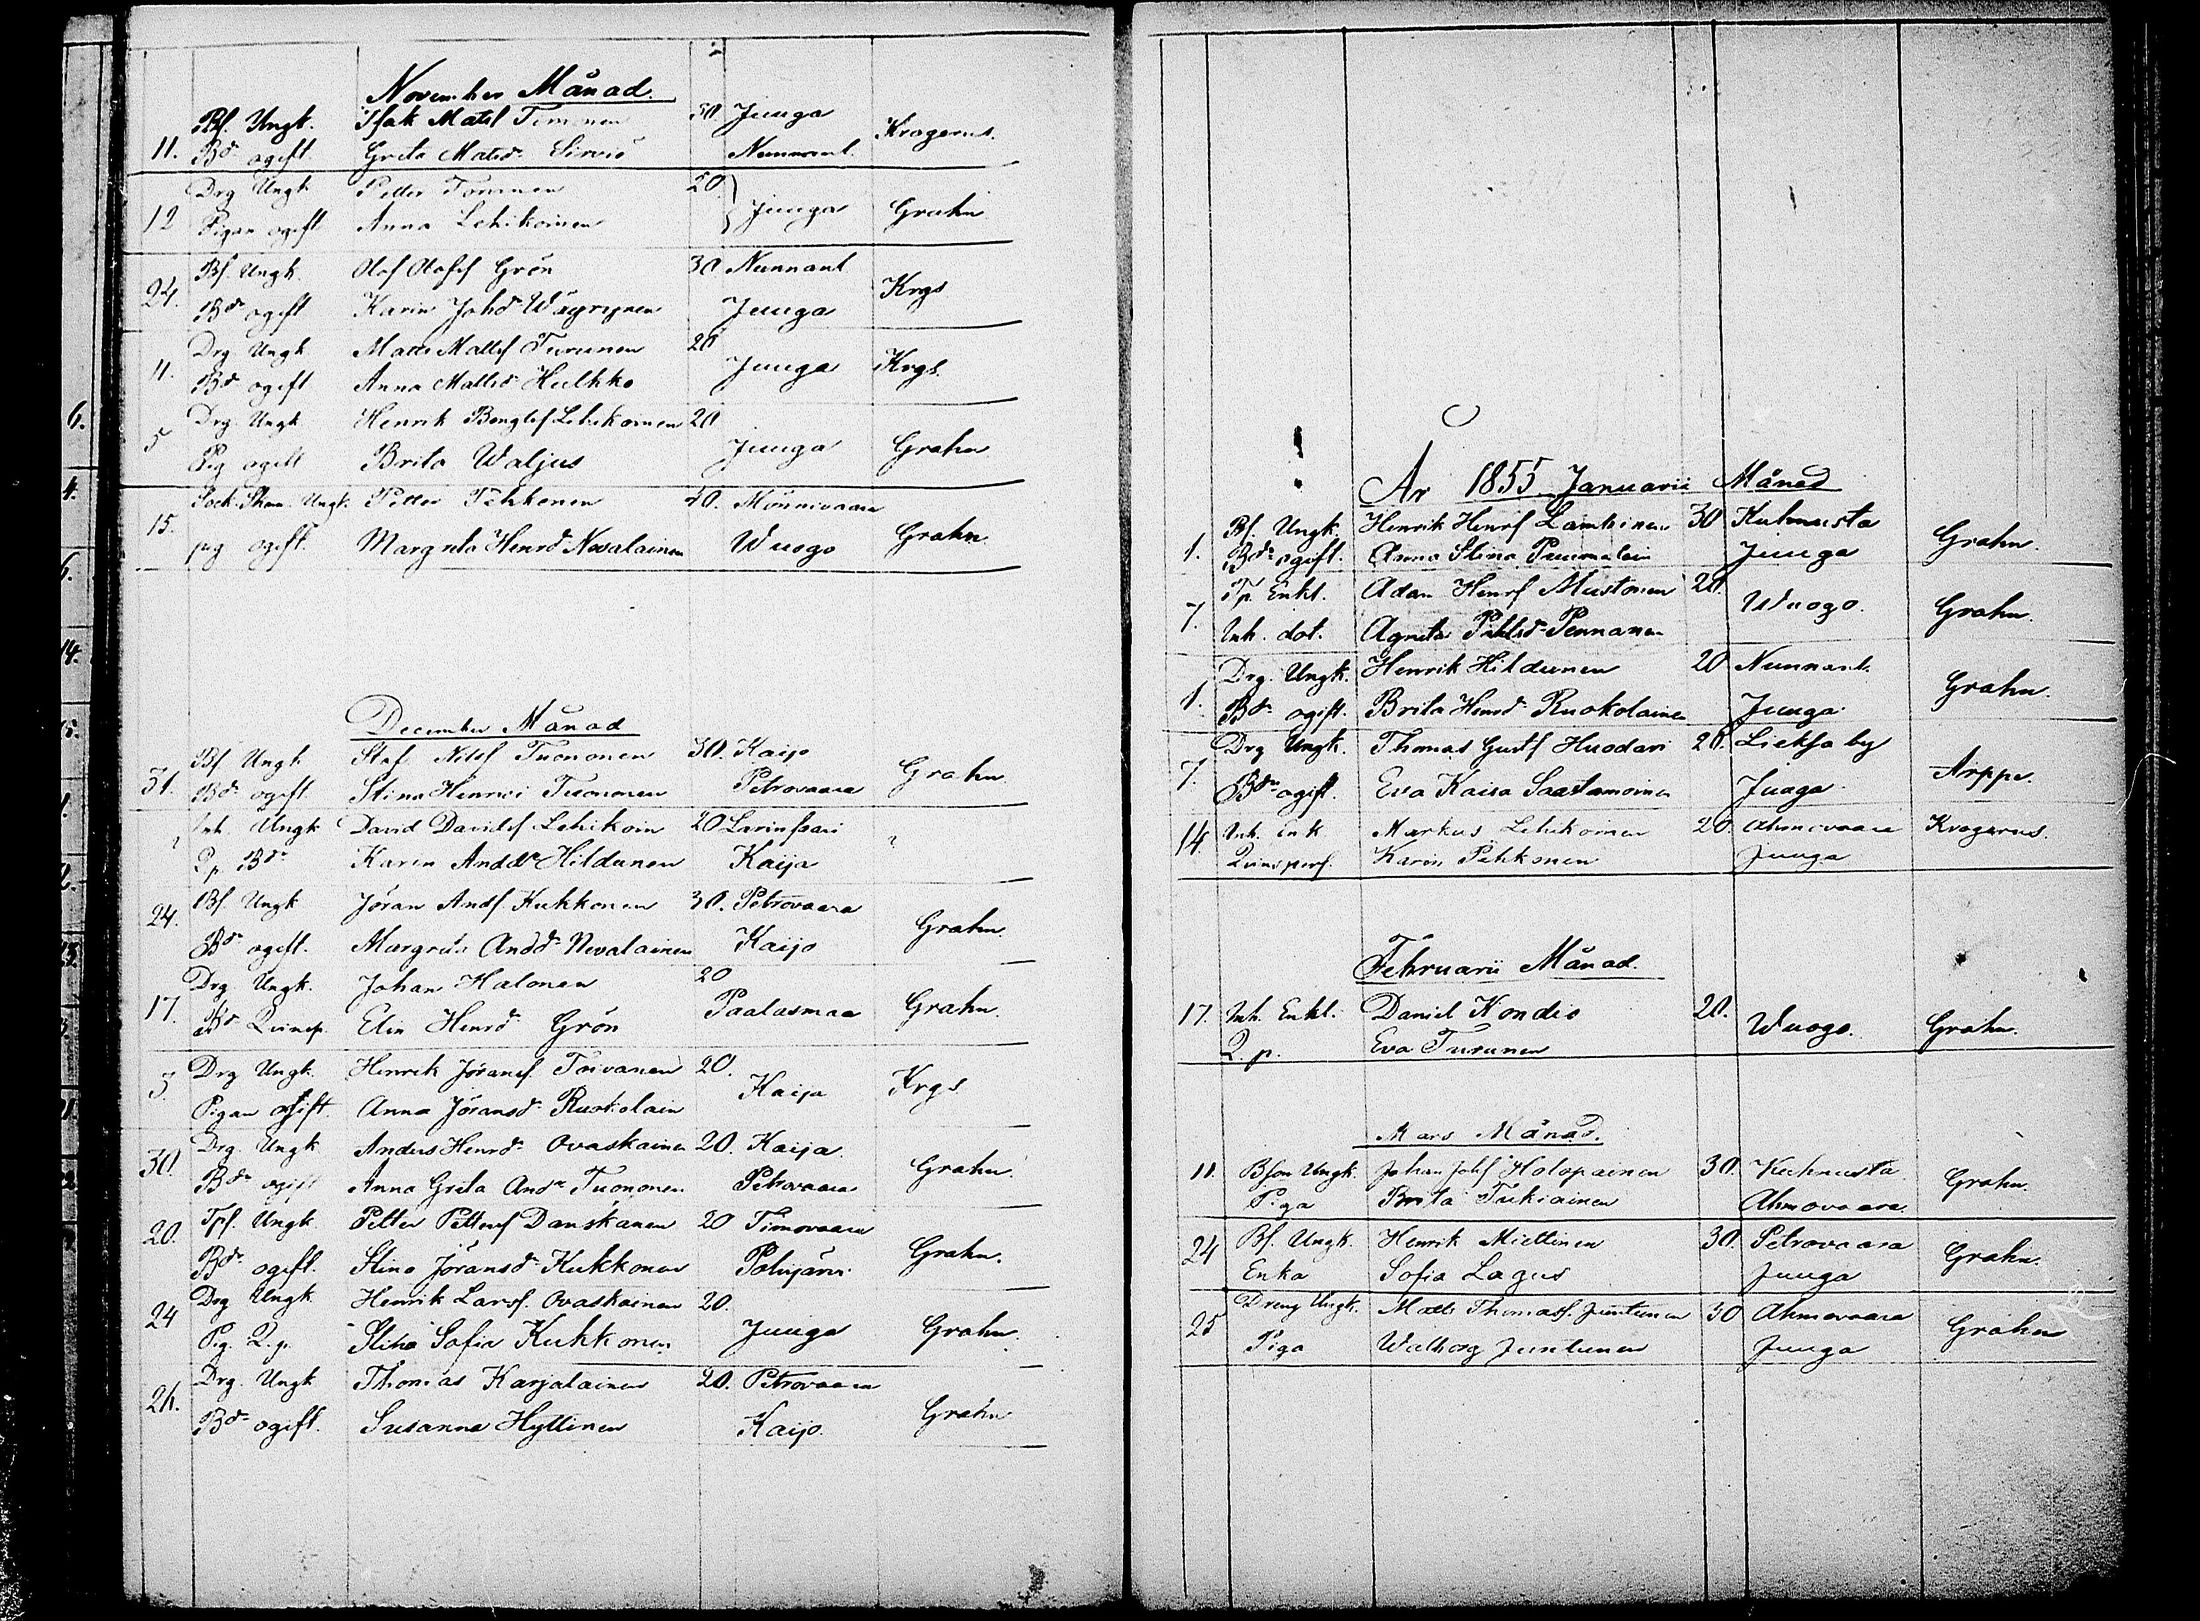 November Månad.
Bf. Ungk. Isak Matsf Timonen 30. Juuga
11. Bdr ogift. Greta Matsdr Sirviö Nunnanl. Krogerus.
Drg Ungk Petter Toivonen 20
12 Pigan ogift Anna Lehikoinen Juuga Grahn
Bf. Ungk. Olof Olofsf Grön 30 Nunnanl
24. Bdr ogift Karin Johdr Wäyrynen Juuga Krgs
Drg Ungk Matts Mattsf Turunen 20
11. Bdr ogift Anna Mattsdr Hulkko Juuga Krgs.
Drg. Ungk Henrik Bengtsf Lehikoinen 20
5 Pig ogift Brita Waljus Juuga Grahn
Sock. Skom. Ungk. Petter Pehkonen 40. Mönnivaara
15. pig ogift. Margreta Henrdr Nevalainen Wuogo Grahn.
December Månad
Bf Ungk Staf. Nilsf Tuononen 30. Kaijo
31. Bdr ogift. Stina Henrici Tuononen Petrovaara Grahn.
Inh. Ungk David Davidsf Lehikoin 20 Larinsaari
? Q.p. Bdr Karin Anddr Hildunen Kaija ?
Bf Ungk Jöran Andf. Kukkonen 30. Petrovaara
24. Bdr ogift. Margreta Anddr Nevalainen Kaijo Grahn.
Drg Ungk. Johan Halonen 20
17. Bdr Qvinsp. Elin Henrdr Grön Paalasmaa Grahn.
Drg Ungk. Henrik Jöransf. Toivanen 20.
5. Pigan ogift. Anna Jöransdr Ruokolain Kaija Krgs
Drg. Ungk Anders Henrdr Ovaskainen 20. Kaija.
30. Bdr ogift Anna Greta Andr Tuononen Petrovaara Grahn.
Tpf. Ungk Petter Pettersf Danskanen 20 Timovaara
20. Bdr ogift. Stina Jöransdr Kukkonen Polvijärvi Grahn.
Drg Ungk Henrik Larsf. Ovaskainen 20.
24 Pig. Q.p. Stina Sofia Kukkonen Juuga Grahn.
Drg. Ungk Thomas Karjalainen 20. Petrovaara
26. Bdr ogift. Susanna Hyttinen Kaijo. Grahn
År 1855 Januarii Månad
Bf. Ungk. Henrik Henrf Lamminen 30 Kuhnusta
1. Bdr ogift. Anna Stina Puumalain Juuga Grahn.
Tp. Enkl. Adam Henrf Mustonen 20.
7. Inh. dot. Agneta Påhlsdr Pennanen Wuogo. Grahn.
Drg. Ungk. Henrik Hildunen 20 Nunnanl.
1. Bdr ogift. Brita Henrdr Ruokolainen Juuga. Grahn.
Drg Ungk. Thomas Gustf Huodari 20. Lieksa by
7. Bdr ogift. Eva Kaisa Saastamoinen Juuga. Arppe.
14. Inh. Enk Markus Lehikoinen 20. Ahmovaara Krogerus.
Qvinsperf. Karin Pehkonen Juuga
Februarii Månad.
17. Inh. Enkl. Daniel Kondio 20. Wuogo. Grahn.
Q.p. Eva Turunen
Mars Månad.
11. Bson Ungk. Johan Johsf Holopainen 30. Kuhnusta Grahn.
Piga Brita Tukiainen Ahmovaara.
24 Bf. Ungk. Henrik Miettinen 30. Petrovaara Grahn.
Enka Sofia Lagus Juuga
25 Dreng Ungk. Matts Thomasf. Juntunen 30 Ahmovaara Grahn
Piga Walborg Juntunen Juuga